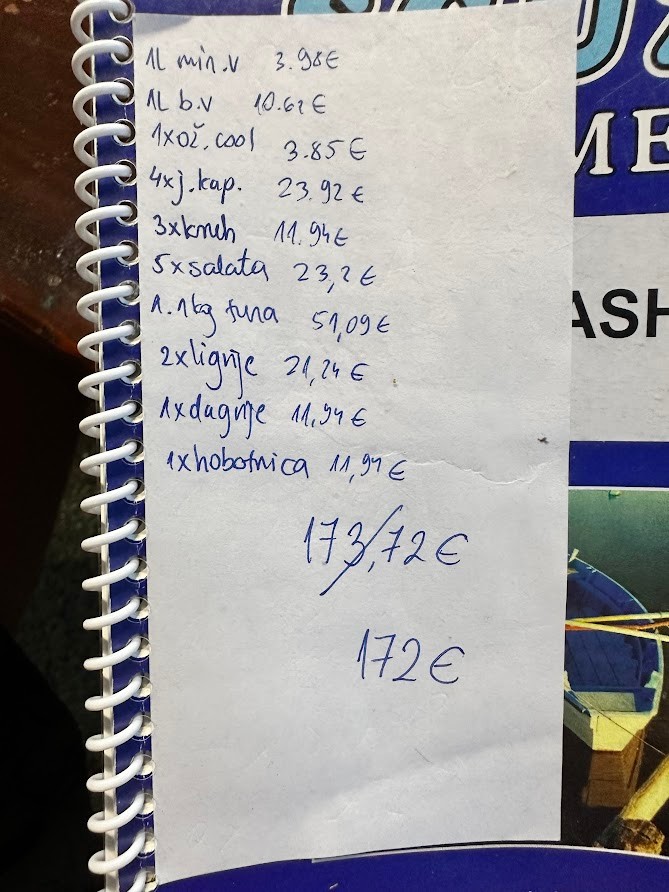 1L min.v 3.98€
1L b.v 10.62€
1xož.cool 3.85€
4xj.kap. 23.92€
3xkneh 11.94€
5xsalata 23,2€
1.1kg tuna 51,09€
2xlignje 21,24€
1xdagnje 11,94€
1xhobotnica 11,94€
173,72€
172€
ME
ASH